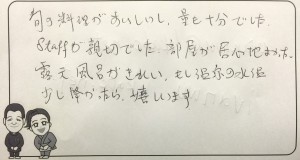 旬の料理がおいしいし、量も十分でした。
Staffが親切でした。部屋が居心地よかった。
露天風呂がきれい。もし温泉の水温
少し降がたら、嬉しいます